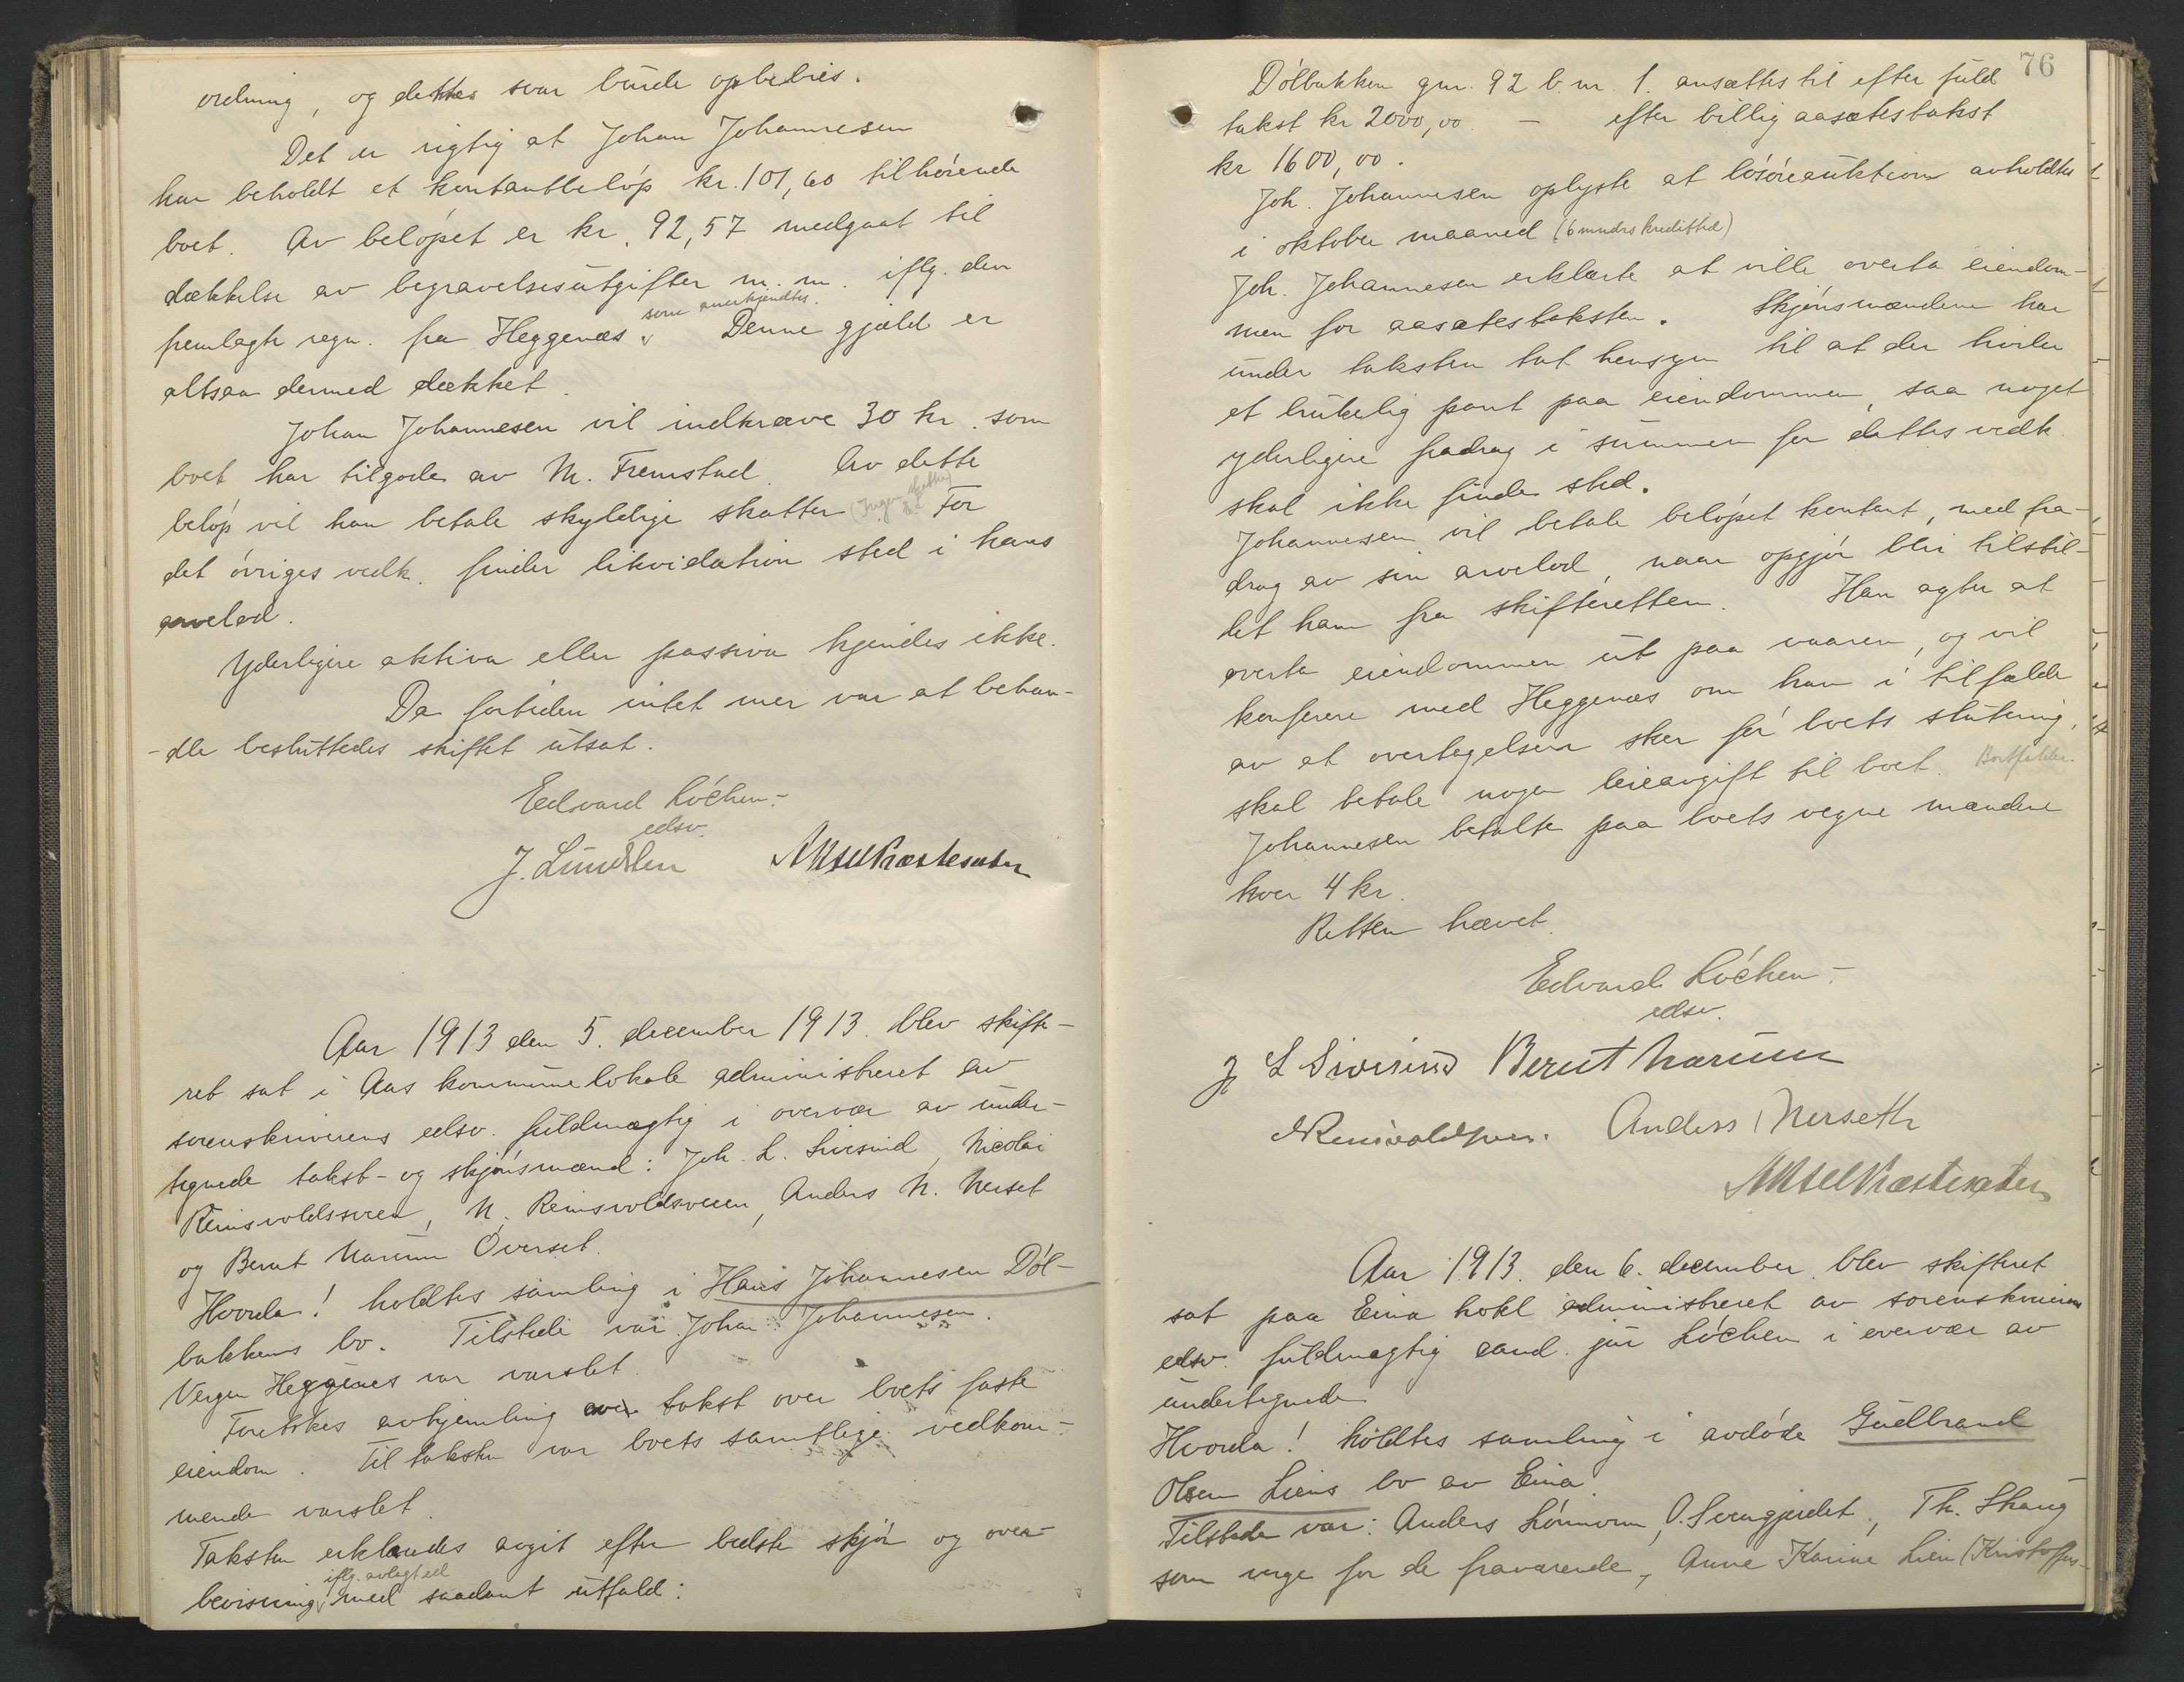 ordning, og dettes svar burde opbebies.
Det er rigtig at Johan Johannesen
har beholdt et kontantbeløp kr. 101,60 tilhørende
boet. Av beløpet er kr. 92,57 medgaat til
dækkelse av begravelsesutgifter m. m. iflg. den
som anerkjendtes.
fremlagte regn. fra Heggenæs. Denne gjæld er
altsaa dermed dækket.
Johan Johannesen vil indkræve 30 kr. som
boet har tilgode av M. Fremstad. Av dette
beløp vil han betale skyldige skatter (Ingen skatter) For
det øvriges vedk. finder likvidation sted i hans
arvelod.
Yderligere aktiva eller passiva kjendes ikke.
Da fortiden intet mer var at behan-
-dle besluttedes skiftet utsat.
Edvard Løchen.-
edsv.
J. Lundsten Aksel Præstesæter
Aar 1913 den 5. december 1913. blev skifte-
ret sat i Aas kommunelokale administreret av
sorenskriverens edsv. fuldmægtig i overvær av under-
tegnede takst- og skjønsmænd: Joh. L. Sivesind, Nicolai
Reinsvoldsveen, N. Reinsvoldsveen, Anders N. Nerset
og Bernt Narum Øverset.
Hvorda! holdtes samling i Hans Johannesen Døl-
bakkens bo. Tilstede var Johan Johannesen.
Vergen Heggenes var varslet.
Foretokes avhjemling over takst over boets faste
eiendom. Til taksten var boets samtlige vedkom-
mende varslet.
Taksten erklæredes avgit efter bedste skjøn og over-
iflg. avlagt ed
bevisning med saadant utfald:
76
Dølbakken gnr. 92 b. nr. 1. ansættes til efter fuld
takst kr 2000,00. - efter billig aasætestakst
kr 1600,00.
Joh. Johannesen oplyste at løsøreauktion avholdtes
i oktober maaned (6 mndrs kredittid)
Joh. Johannesen erklærte at ville overta eiendom-
men for aasætestaksten. Skjønsmændene har
under taksten tat hensyn til at der hviler
et brukelig pant paa eiendommen, saa noget
yderligere fradrag i summen for dettes vedk.
skal ikke finde sted.
Johannesen vil betale beløpet kontant, med fra-
drag av sin arvelod, naar opgjør blir tilstil-
let ham fra skifteretten. Han agter at
overta eiendommen ut paa vaaren, og vil
konferere med Heggenæs om han i tilfælde
av at overtagelsen sker før boets slutning,
skal betale nogen leieavgift til boet. Bortfalder.
Johannesen betalte paa boets vegne mændene
hver 4 kr.
Retten hævet.
Edvard Løchen.-
edsv.
J L Sivesind Bernt Narum
N Reinsvoldsveen. Anders Nerseth
Aksel Præstesæter
Aar 1913. den 6. december. blev skifteret
sat paa Eina hotel administreret av sorenskriverens
edsv. fuldmægtig cand. jur Løchen i overvær av
undertegnede
Hvorda! holdtes samling i avdøde Gudbrand
Olsen Liens bo av Eina.
Tilstede var: Anders Lønnum, O. Svengjerdet, Th. Skaug
som verge for de fraværende, Anne Karine Lien (Kristoffers-